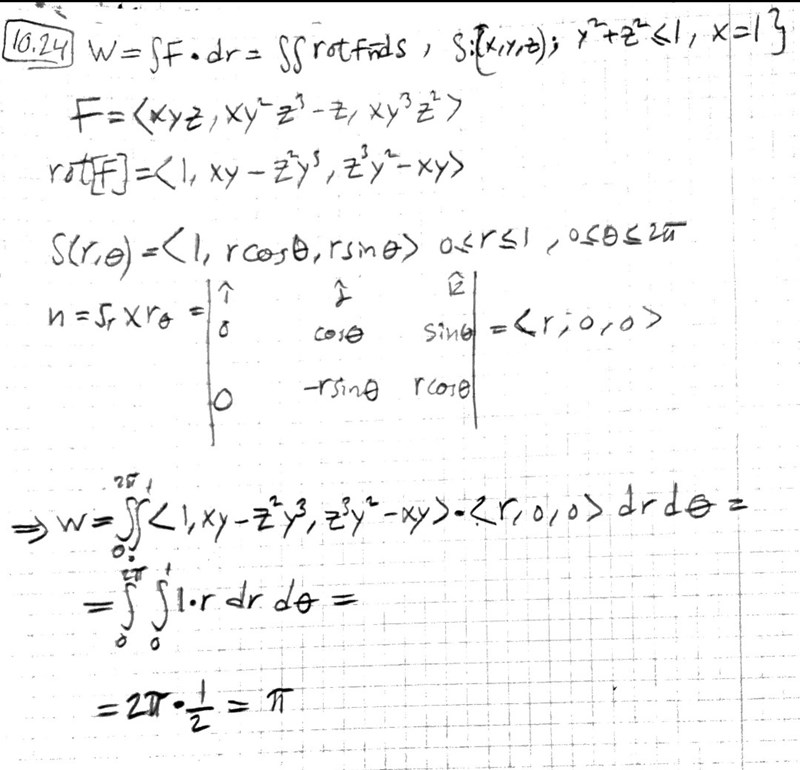 10.24 W = ∫F • dr = ∬ rot F n ds , S:{(x,y,z); y² + z² ≤ 1, x = 1}
F = ⟨xyz, xy²z³ - z, xy³z²⟩
rot[F] = ⟨1, xy - z²y³, z³y² - xy⟩
S(r,θ) = ⟨1, rcosθ, rsinθ⟩ 0 ≤ r ≤ 1 , 0 ≤ θ ≤ 2π
î ĵ k̂
n = Sr × rθ = | 0 cosθ sinθ | = ⟨r, 0, 0⟩
0 -rsinθ rcosθ
⇒ W = ∫₀^2π ∫₀^1 ⟨1, xy - z²y³, z³y² - xy⟩ • ⟨r, 0, 0⟩ dr dθ =
= ∫₀^2π ∫₀^1 1•r dr dθ =
= 2π • 1/2 = π